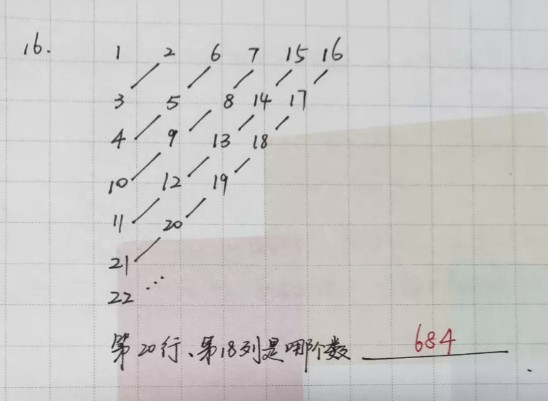 16. 1 2 6 7 15 16
3 5 8 14 17
4 9 13 18
10 12 19
11 20
21
22 ...
第20行、第18列是哪个数 684